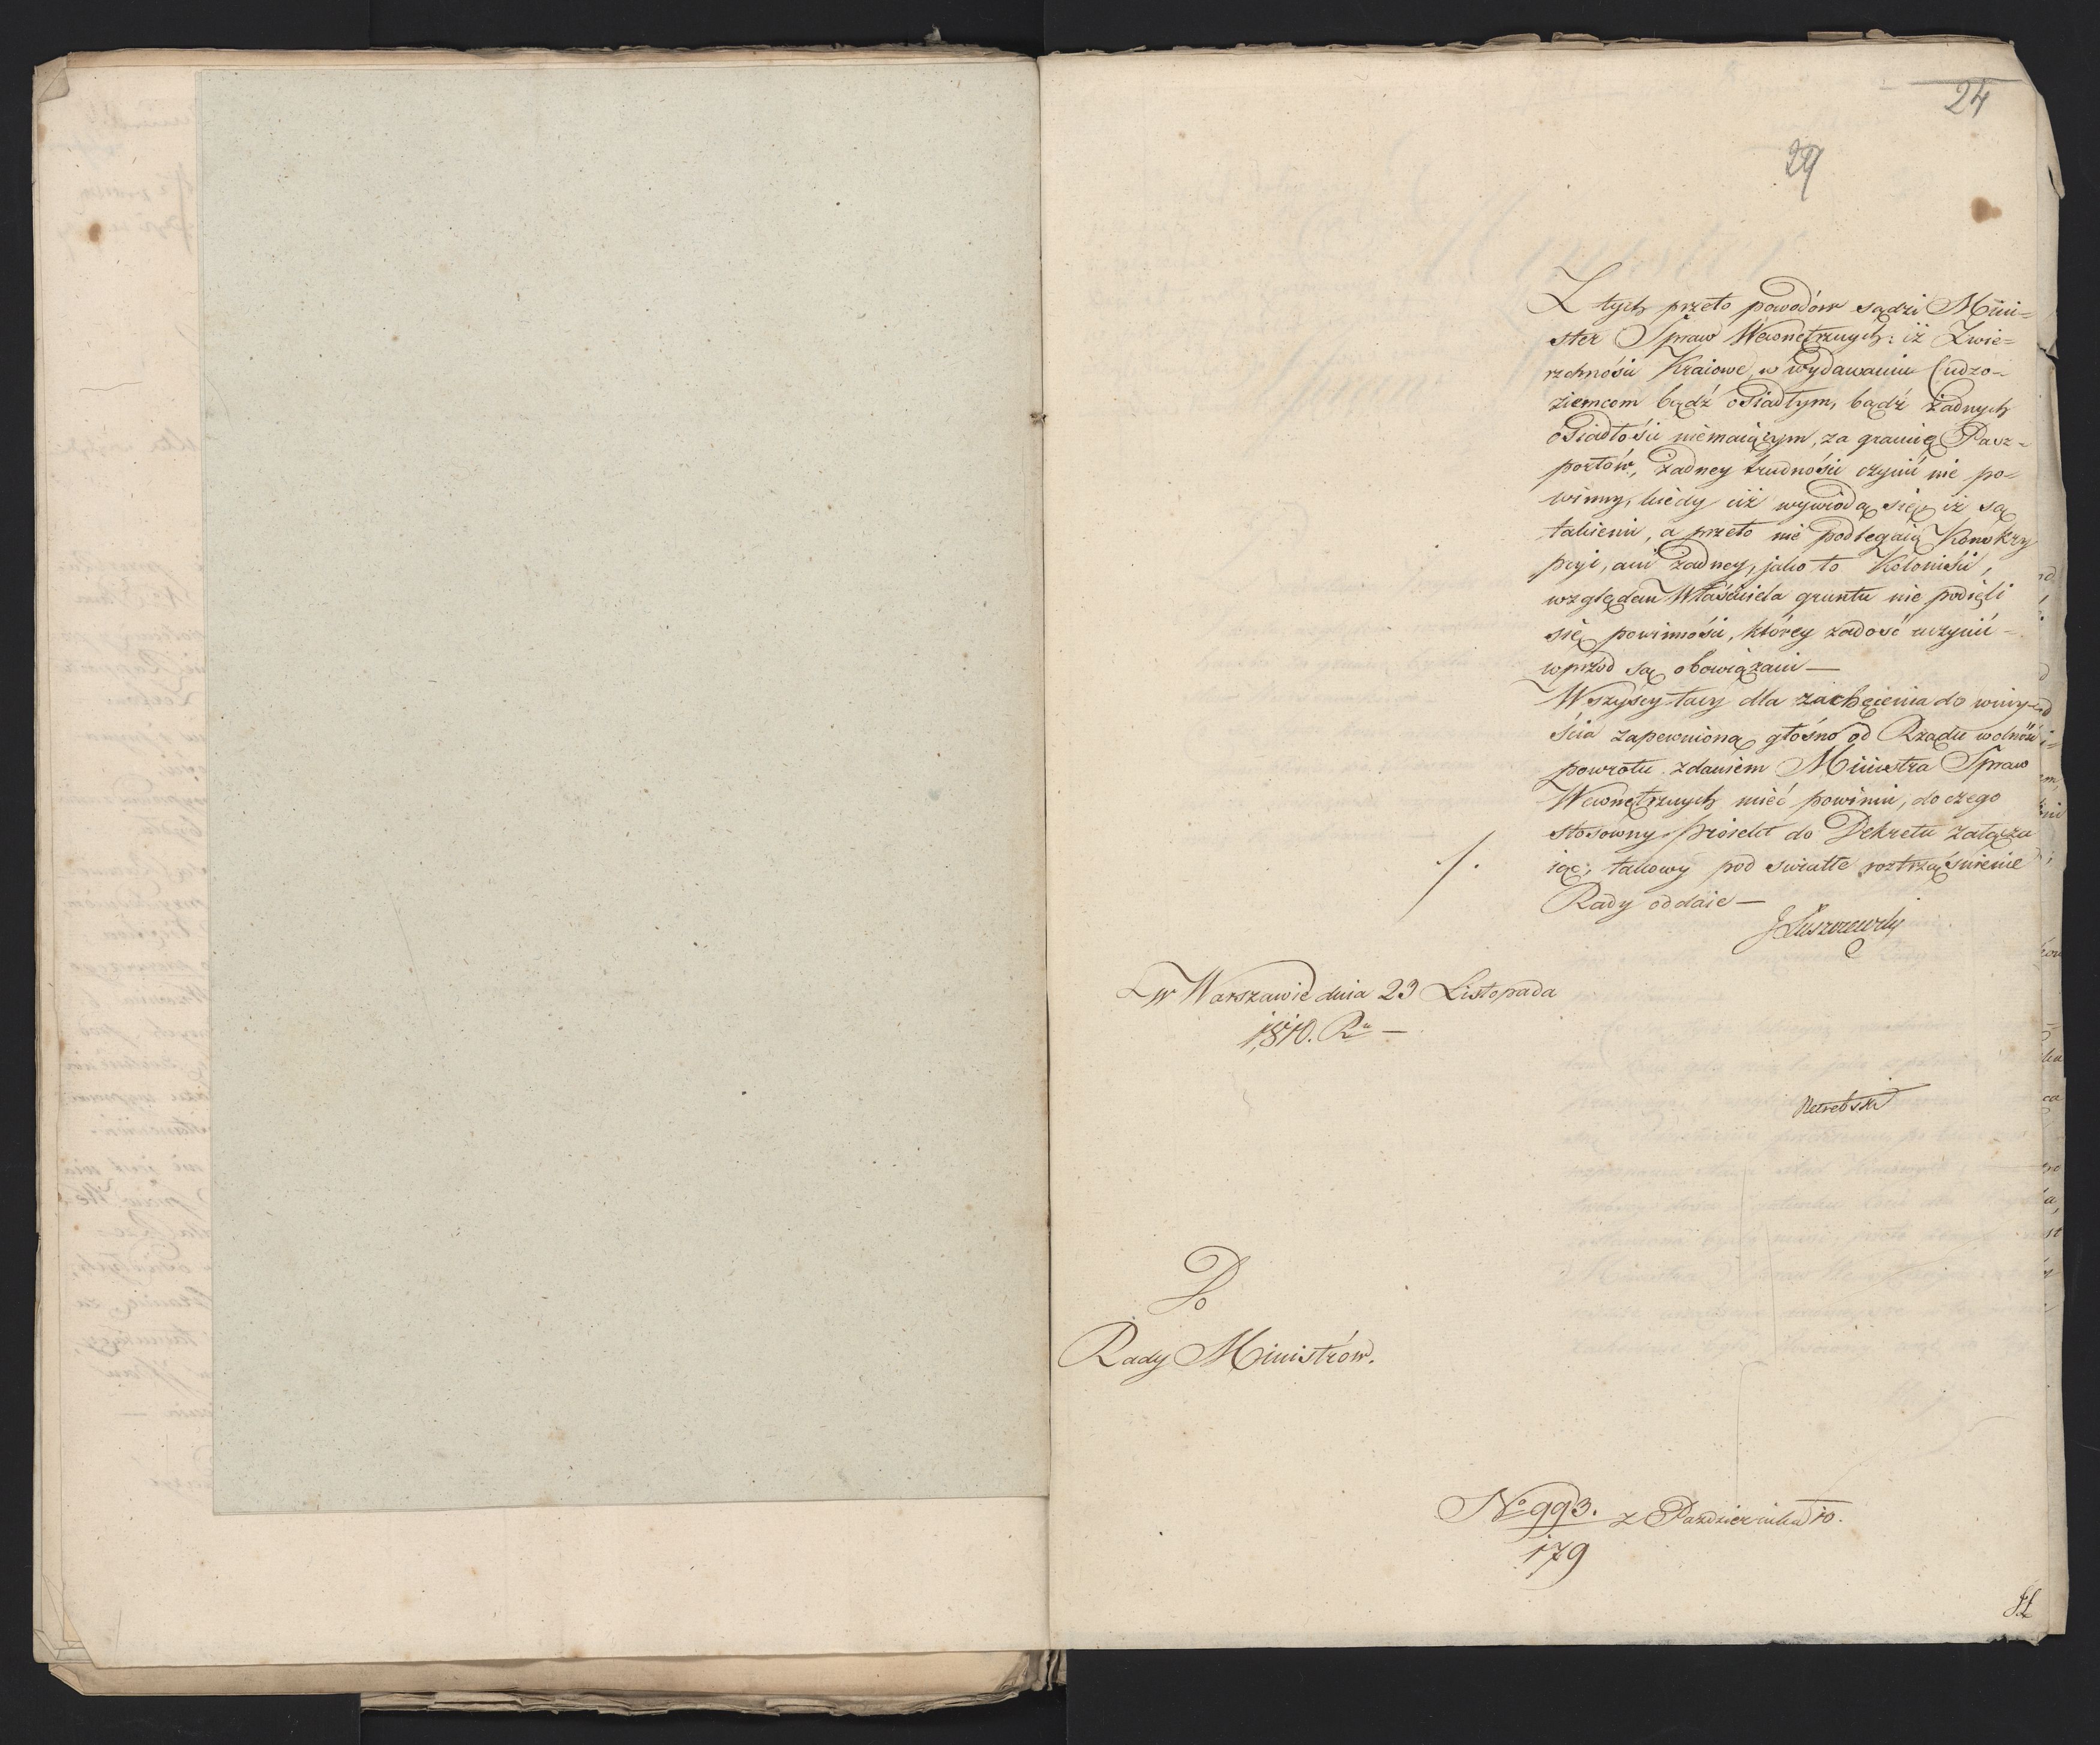 24
24
Z tych przeto powodów sądzi Mini=
ster Spraw Wewnętrznych: iż Zwie=
rzchności Kraiowe, w wydawaniu Cudzo=
ziemcom bądź osiadłym, bądź żadnych
osiadłości niemaiącym, za granicę Pasz=
portów, żadney trudności czynić nie po=
winny, kiedy ciż wywiodą się, iż są
takiemi, a przeto nie podlegaią Konskry
pcyi, ani żadney, jako to Koloniści,
względem Właściciela gruntu nie podięli
się powinności, którey zadość uczynić =
wprzód są obowiązani —
Wszyscy tacy dla zachęcenia do
zapewnioną głośno od Rządu wolność
powrotu zdaniem Ministra Spraw
Wewnętrznych mieć powinni, do czego
stosowny proiekt do Dekretu załącza
iąc, takowy pod światłe roztrząśnienie
Rady oddaie —
J Łuszczewski
w Warszawie dnia 23 Listopada
1810. Ru —
Do
Rady Ministrów.
No 993. z Pazdziernika 10.
179